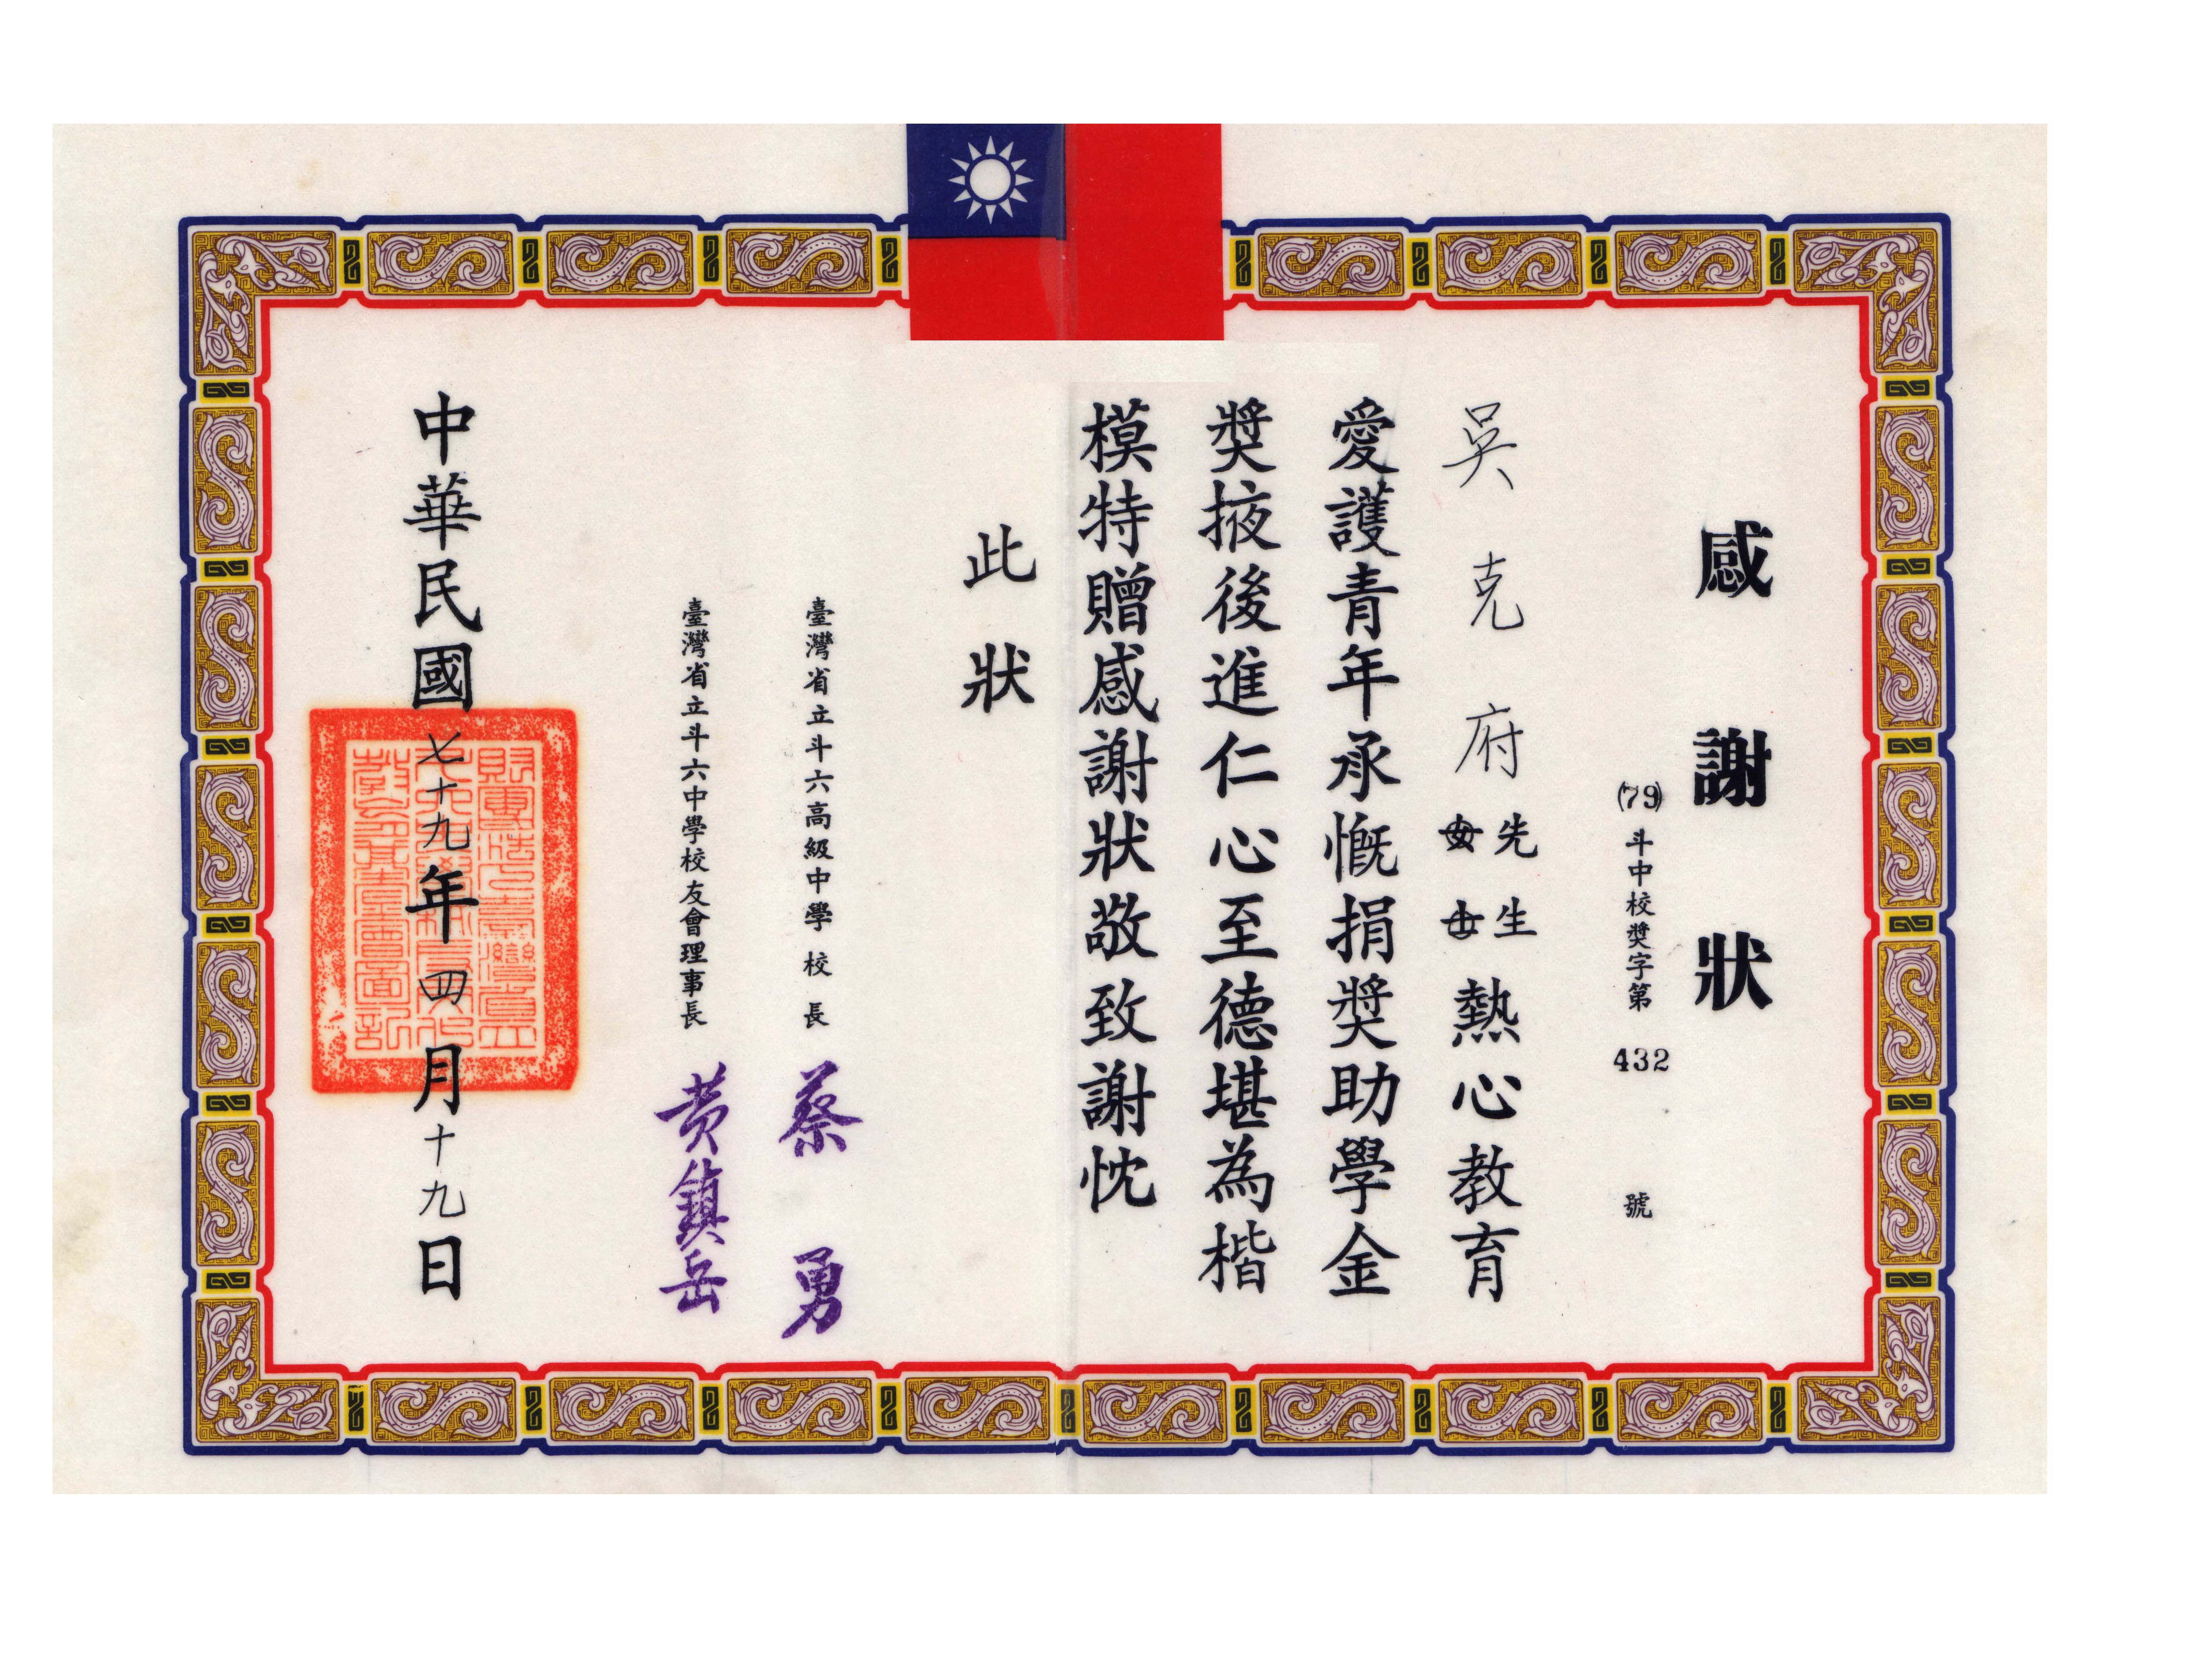 感謝狀
(79)斗中校奬字第 432 號
吳克府先生女士熱心教育
愛護青年承慨捐奬助學金
奬掖後進仁心至德堪為楷
模特贈感謝狀敬致謝忱
此狀
臺灣省立斗六高級中學校長 蔡勇
臺灣省立斗六中學校友會理事長 黃鎮岳
中華民國七十九年四月十九日